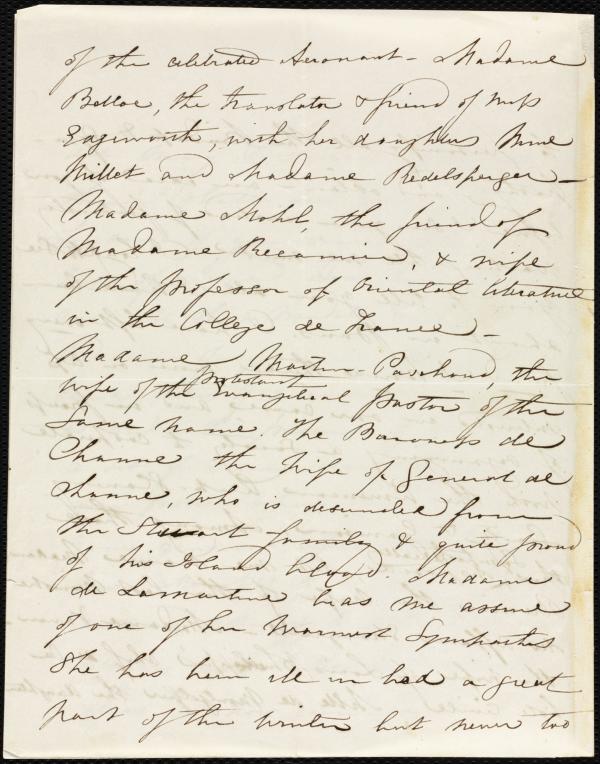 of the celebrated Aeronaut - Madame
Belloc, the translator & friend of Miss
Edgeworth, with her daughters Mme
Millet and Madame Redelsperger -
Madame Mohl, the friend of
Madame Recamier, & wife
of the professor of Oriental Literature
in the College de France -
Madame Martin-Paschoud, the
wife of the protestant Evangelical pastor of the
same name. The Baroness de
Channe the wife of General de
Channe, who is descended from
the Stuart family & quite proud
of his Island blood. Madame
de Lamartine begs me assure
of one of her warmest Sympathies
She has been ill in bed a great
part of the winter but never too